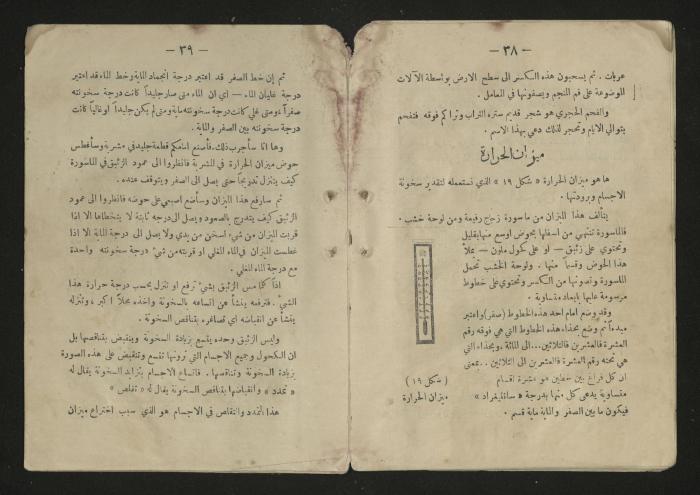 — ٣٨ —
عربات . ثم يسحبون هذه المكاسر الى سطح الارض بواسطة الآلات
الموضوعة على فم المنجم ويصفونها في المعامل .
والفحم الحجري هو شجر قديم ستره التراب وتراكم فوقه فتفحم
بتوالي الايام وتحجر لذلك دعي بهذا الاسم .
ميزان الحرارة
ها هو ميزان الحرارة « شكل ١٩ » الذي نستعمله لتقدير سخونة
الاجسام وبرودتها .
يتألف هذا الميزان من ماسورة زجاج رفيعة ومن لوحة خشب .
فالماسورة تنتهي من اسفلها بحوض اوسع منها بقليل
وتحتوي على زئبق — او على كحول ملون — يملأ
هذا الحوض وقسماً منها . ولوحة الخشب تحمل
الماسورة وتصونها من الكسر وتحتوي على خطوط
مرسومة عليها بابعاد متساوية .
وقد وضع امام احد هذه الخطوط (صفر) واعتبر
مبدءاً ثم وضع بحذاء هذه الخطوط التي هي فوقه رقم
العشرة فالعشرين فالثلاثين... الى المائة . وبحذاء التي
هي تحته رقم العشرة فالعشرين الى الثلاثين .. بمعنى
ان كل فراغ بين خطين هو عشرة اقسام
متساوية يدعى كل منها بدرجة « سانتيغراد »
فيكون ما بين الصفر والماية ماية قسم .
( شكل ١٩ )
ميزان الحرارة
— ٣٩ —
ثم إن خط الصفر قد اعتبر درجة انجماد الماية وخط الماء قد اعتبر
درجة غليان الماء — اي ان الماء متى صار جليداً كانت درجة سخونته
صفراً ومتى غلي كانت درجة سخونته ماية ومتى لم يكن جليداً او غالياً كانت
درجة سخونته بين الصفر والماية .
وها انا سأجرب ذلك . فأضع امامكم قطعة جليد في مشربة وسأغطس
حوض ميزان الحرارة في المشربة فانظروا الى عمود الزئبق في الماسورة
كيف يتنزل تدريجاً حتى يصل الى الصفر ويتوقف عنده .
ثم سارفع هذا الميزان وسأضع اصبعي على حوضه فانظروا الى عمود
الزئبق كيف يتدرج بالصعود ويصل الى درجة ثابتة لا يتخطاها الا اذا
قربت الميزان من شيء اسخن من يدي ولا يصل الى درجة الماية الا اذا
غطست الميزان في الماء المغلي او قربته من شيء درجة سخونته واحدة
مع درجة الماء المغلي .
اذاً كلما مس الزئبق بشيء ترفع او تنزل بحسب درجة حرارة هذا
الشيء . فترفعه ينشأ عن اتساعه بالسخونة واخذه محلاً اكبر ، وتنزله
ينشأ عن انقباضه اي تصاغره بتناقص السخونة .
وليس الزئبق وحده يتسع بزيادة السخونة وينقبض بتناقصها بل
ان الكحول وجميع الاجسام التي ترونها تتسع وتنقبض على هذه الصورة
بزيادة السخونة وتناقصها . فاتساع الاجسام بتزايد السخونة يقال له
« تمدد » وانقباضها بتناقص السخونة يقال له « تقلص »
هذا التمدد والتقلص في الاجسام هو الذي سبب اختراع ميزان